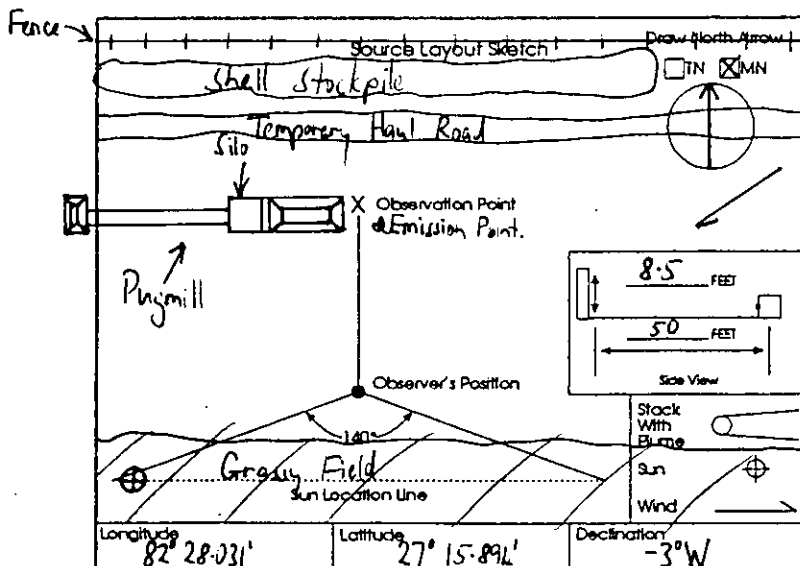 Fence
Source Layout Sketch
Draw North Arrow
TN
MN
Shell Stockpile
Temporary Haul Road
Silo
Observation Point
& Emission Point.
Pugmill
8.5 FEET
50 FEET
Side View
Observer's Position
140°
Stack
With
Plume
Grassy Field
Sun
Sun Location Line
Wind
Longitude
82° 28.031'
Latitude
27° 15.894'
Declination
-3° W